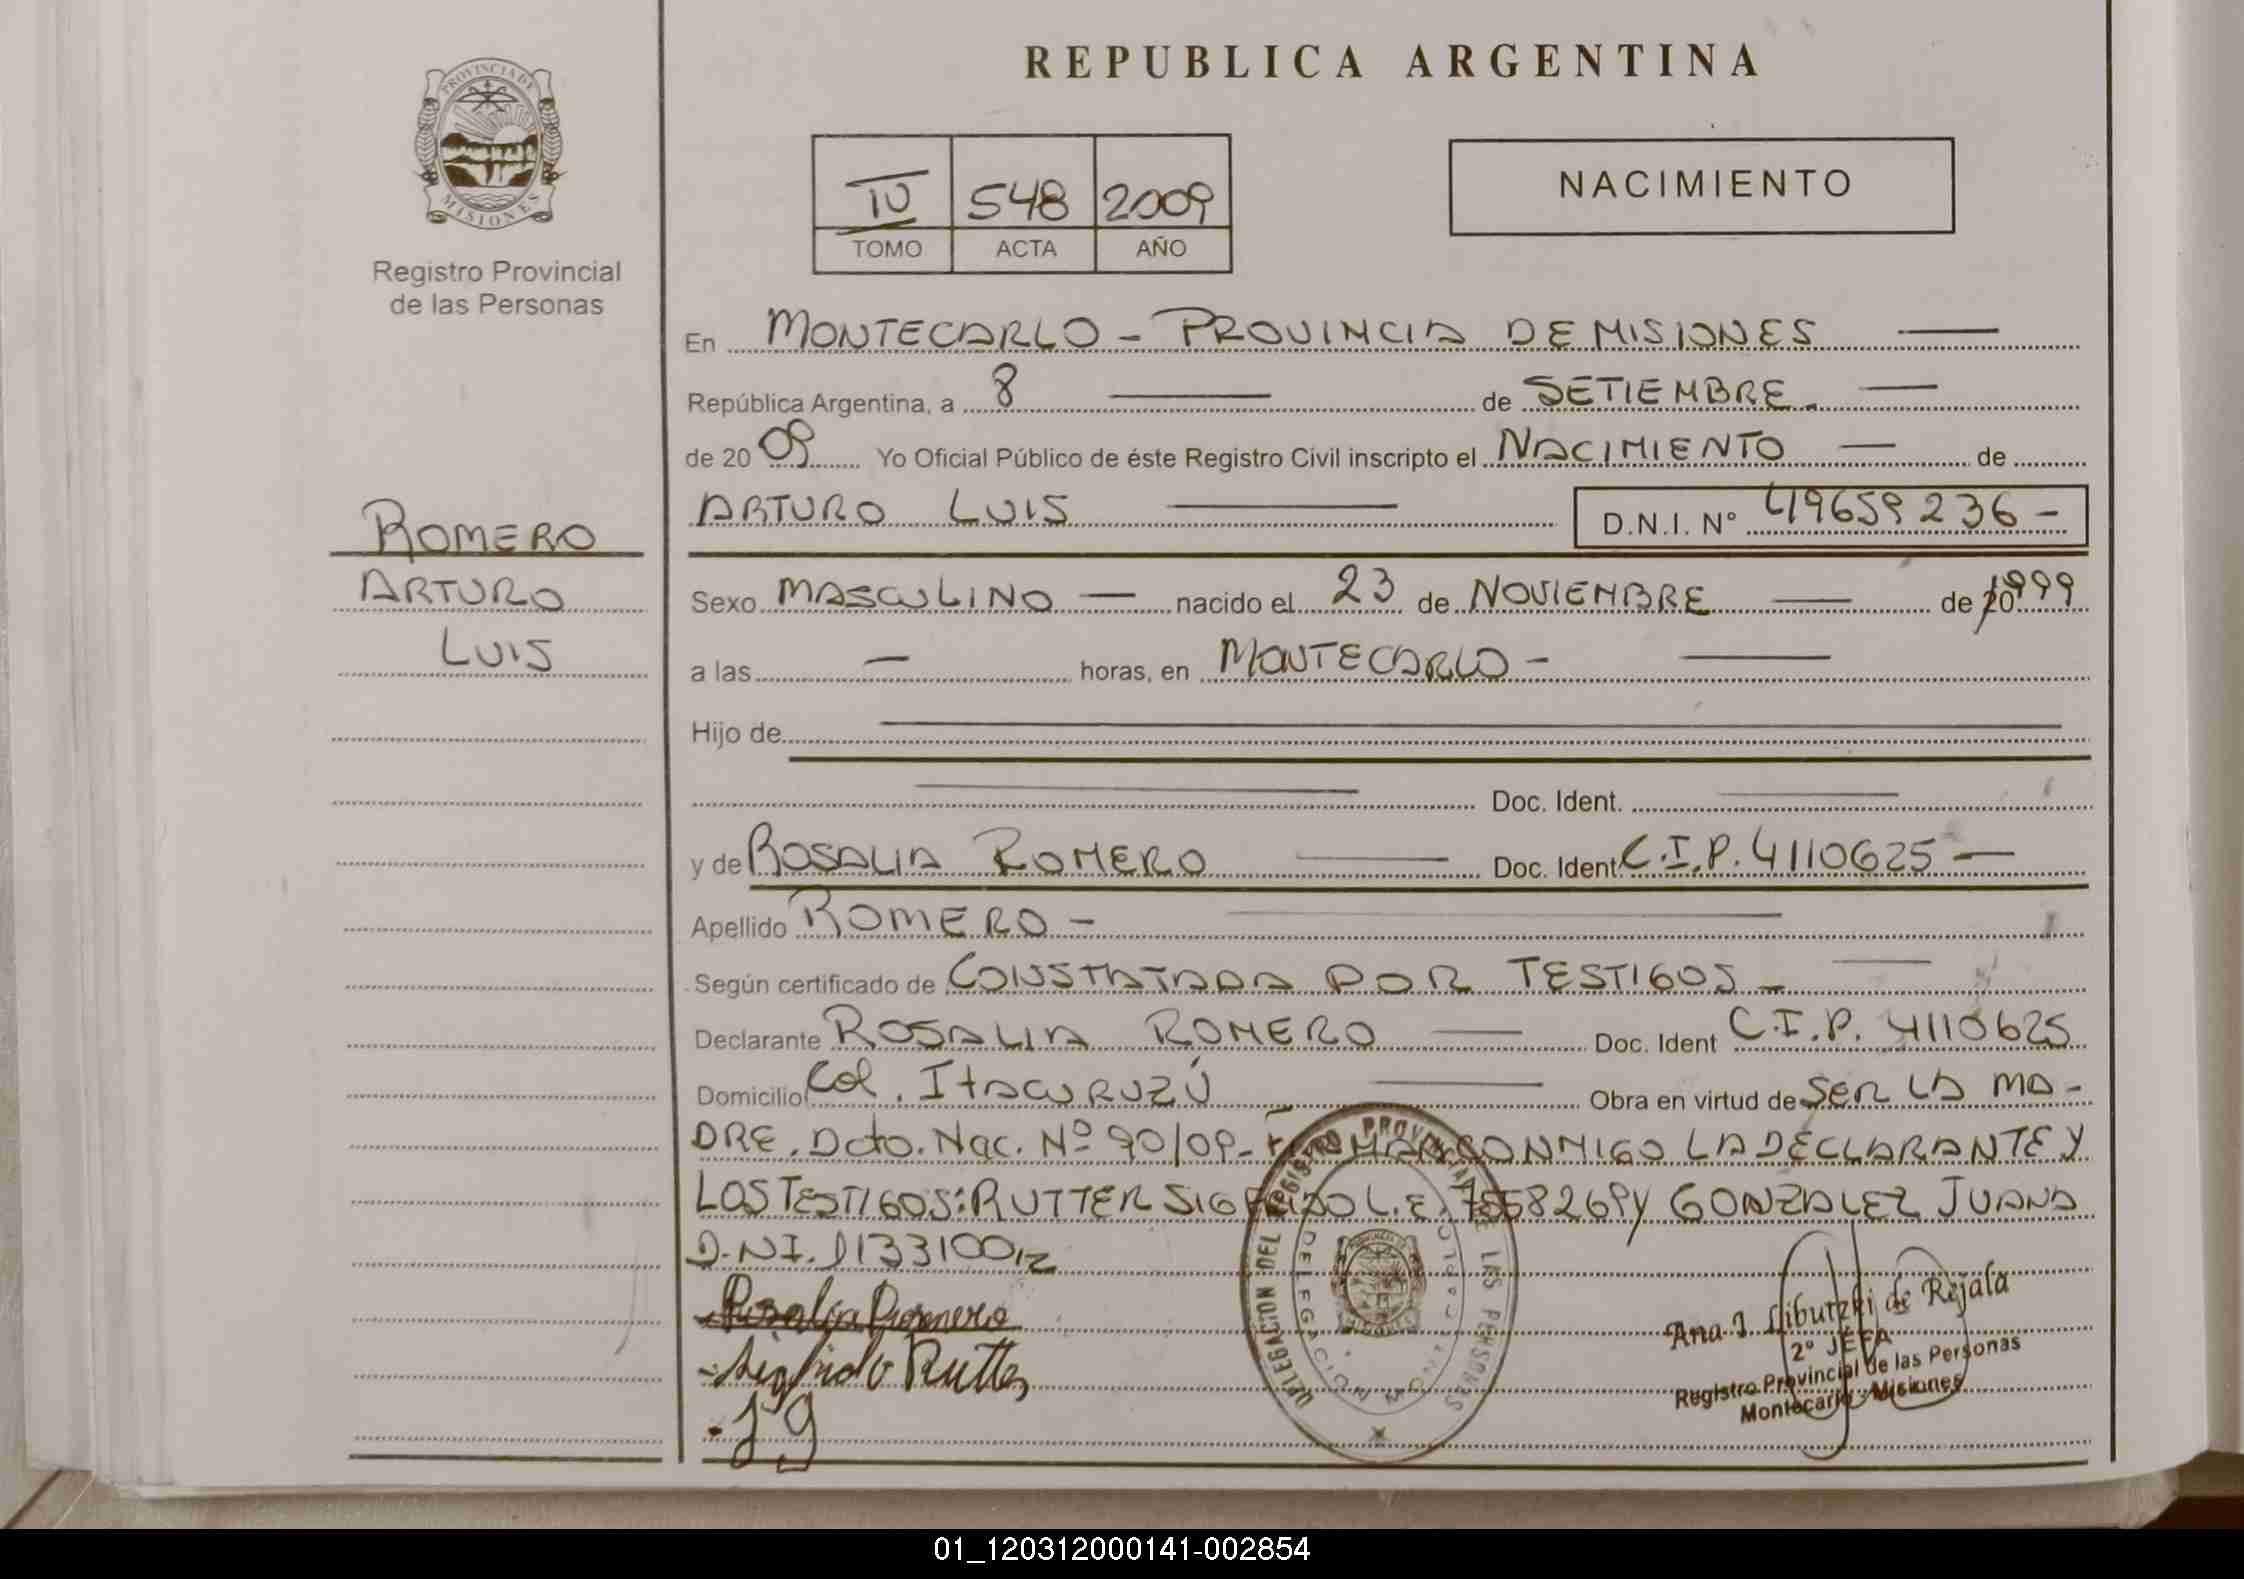 REPUBLICA ARGENTINA
PROVINCIA DE
MISIONES
Registro Provincial
de las Personas
IV 548 2009
TOMO ACTA AÑO
NACIMIENTO
En MONTECARLO - PROVINCIA DE MISIONES
República Argentina, a 8 de SETIEMBRE.
de 20 09 Yo Oficial Público de éste Registro Civil inscripto el NACIMIENTO de
ARTURO LUIS D.N.I. Nº 49659236-
ROMERO
ARTURO
LUIS
Sexo MASCULINO nacido el 23 de NOVIEMBRE de 1999
a las - horas, en MONTECARLO -
Hijo de
Doc. Ident.
y de ROSALIA ROMERO Doc. Ident C.I.P. 4110625 -
Apellido ROMERO -
Según certificado de CONSTATADA POR TESTIGOS -
Declarante ROSALIA ROMERO Doc. Ident C.I.P. 4110625
Domicilio Col. ItACURUZÚ Obra en virtud de SER LA MA-
DRE. Dcto. Nac. Nº 90/09- FIRMAN CONMIGO LA DECLARANTE Y
LOS TESTIGOS: RUTTER SIGFRIDO L.E. 7558269 Y GONZALEZ JUANA
D.NI.
Rosalia Romero
Sigfrido Rutter
J g
DELEGACION DEL REGISTRO PROVINCIAL DE LAS PERSONAS
DELEGACION MONTECARLO
Ana I. Libutzki de Rejala
2º JEFA
Registro Provincial de las Personas
Montecarlo - Misiones
01_120312000141-002854